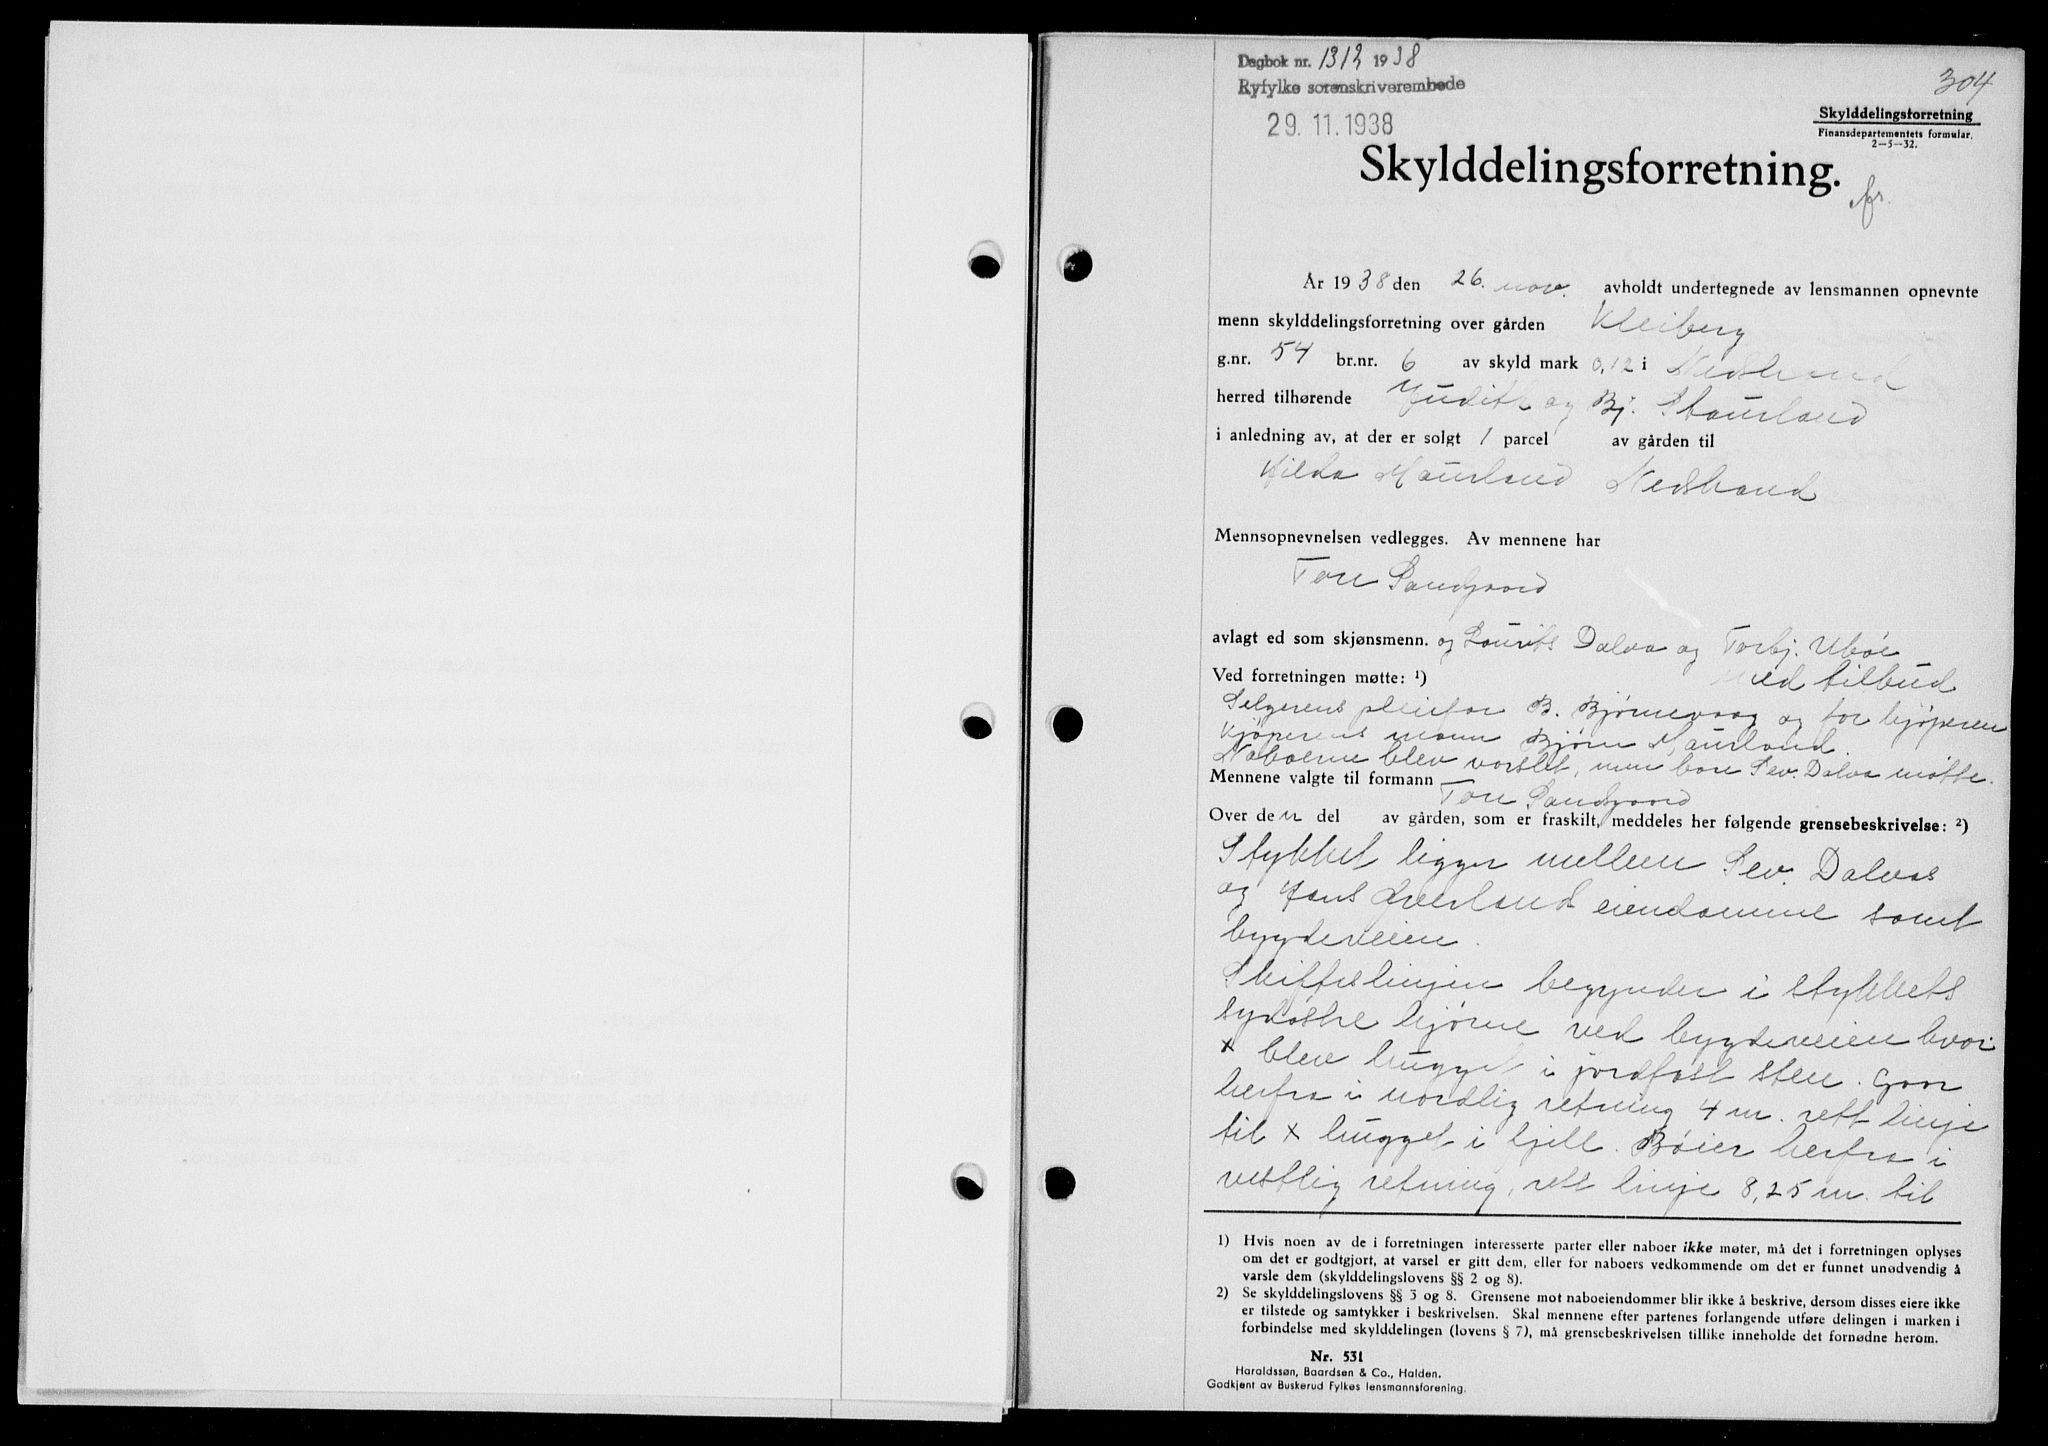 Dagbok nr. 1312 1938
Ryfylke sorenskriverembede
29.11.1938
304
Skylddelingsforretning
Finansdepartementets formular.
2—5—32.
Skylddelingsforretning.
fr.
År 1938 den 26. nov. avholdt undertegnede av lensmannen opnevnte
menn skylddelingsforretning over gården Kleiberg
g.nr. 54 br.nr. 6 av skyld mark 0,12 i Nedstrand
herred tilhørende Judith og Bj. Staurland
i anledning av, at der er solgt 1 parcel av gården til
Hilda Maurland Nedstrand
Mennsopnevnelsen vedlegges. Av mennene har
Tore Sandgaard
avlagt ed som skjønsmenn. og Laurits Dalva og Torbj. Ubøe
Ved forretningen møtte: 1) med tilbud
Selgerens pleiefar B. Bjørnevaag og for kjøperen
Kjøperens mann Bjørn Maurland.
Naboerne blev varslet, men bare Sev. Dalva møtte.
Mennene valgte til formann Tore Sandgaard
Over den del av gården, som er fraskilt, meddeles her følgende grensebeskrivelse: 2)
Stykket ligger mellem Sev. Dalvas
og Hans eiendomme samt
bygdeveien.
Skiftelinjen begynder i stykkets
sydøstre hjørne ved bygdeveien hvor
x blev hugget i jordfast sten. Gaar
herfra i nordlig retning 4 m. rett linje
til x hugget i fjell. Bøier herfra i
vestlig retning, rett linje 8,25 m. til
1) Hvis noen av de i forretningen interesserte parter eller naboer ikke møter, må det i forretningen oplyses
om det er godtgjort, at varsel er gitt dem, eller for naboers vedkommende om det er funnet unødvendig å
varsle dem (skylddelingslovens §§ 2 og 8).
2) Se skylddelingslovens §§ 3 og 8. Grensene mot naboeiendommer blir ikke å beskrive, dersom disses eiere ikke
er tilstede og samtykker i beskrivelsen. Skal mennene efter partenes forlangende utføre delingen i marken i
forbindelse med skylddelingen (lovens § 7), må grensebeskrivelsen tillike inneholde det fornødne herom.
Nr. 531
Haraldssøn, Baardsen & Co., Halden.
Godkjent av Buskerud Fylkes lensmannsforening.